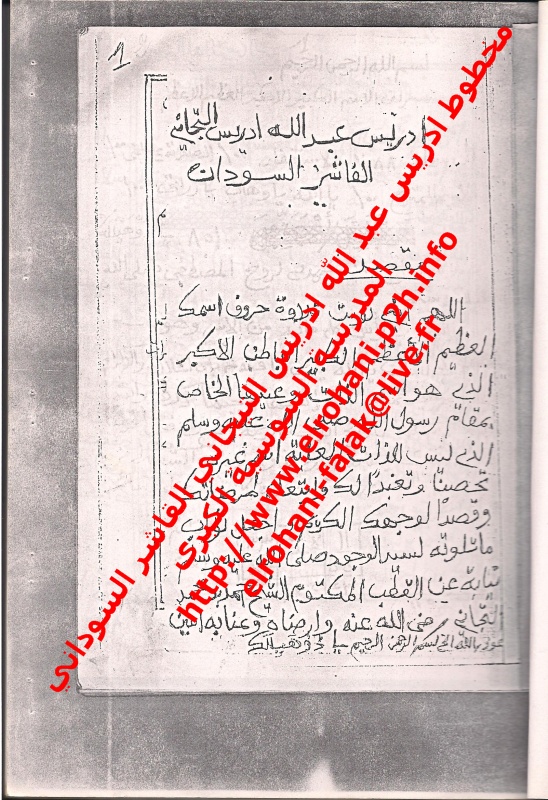 1
ادريس عبد الله ادريس التجاني
الفاشر السودان
مقصد
اللهم اني نويت تلاوة حروف اسمك
العظيم الأعظم الكبير الباطن الاكبر
الذي هو اسم الخاص
بمقام رسول الله صلى الله عليه وسلم
الذي ليس للذات العلية اسم غيره
تحصينا وتعبدا لك
وقصدا لوجهك الكريم
ما تلوته لسيد الوجود صلى الله عليه وسلم
نيابة عن القطب المكتوم الشيخ احمد بن محمد
التجاني رضي الله عنه وارضاه وعنا به امين
بسم الله الرحمن الرحيم
مخطوط ادريس عبد الله ادريس التجاني الفاشر السوداني
المدرسه السوسيه الكبرى
http://www.elrohani.p2h.info
elrohani-falak@live.fr